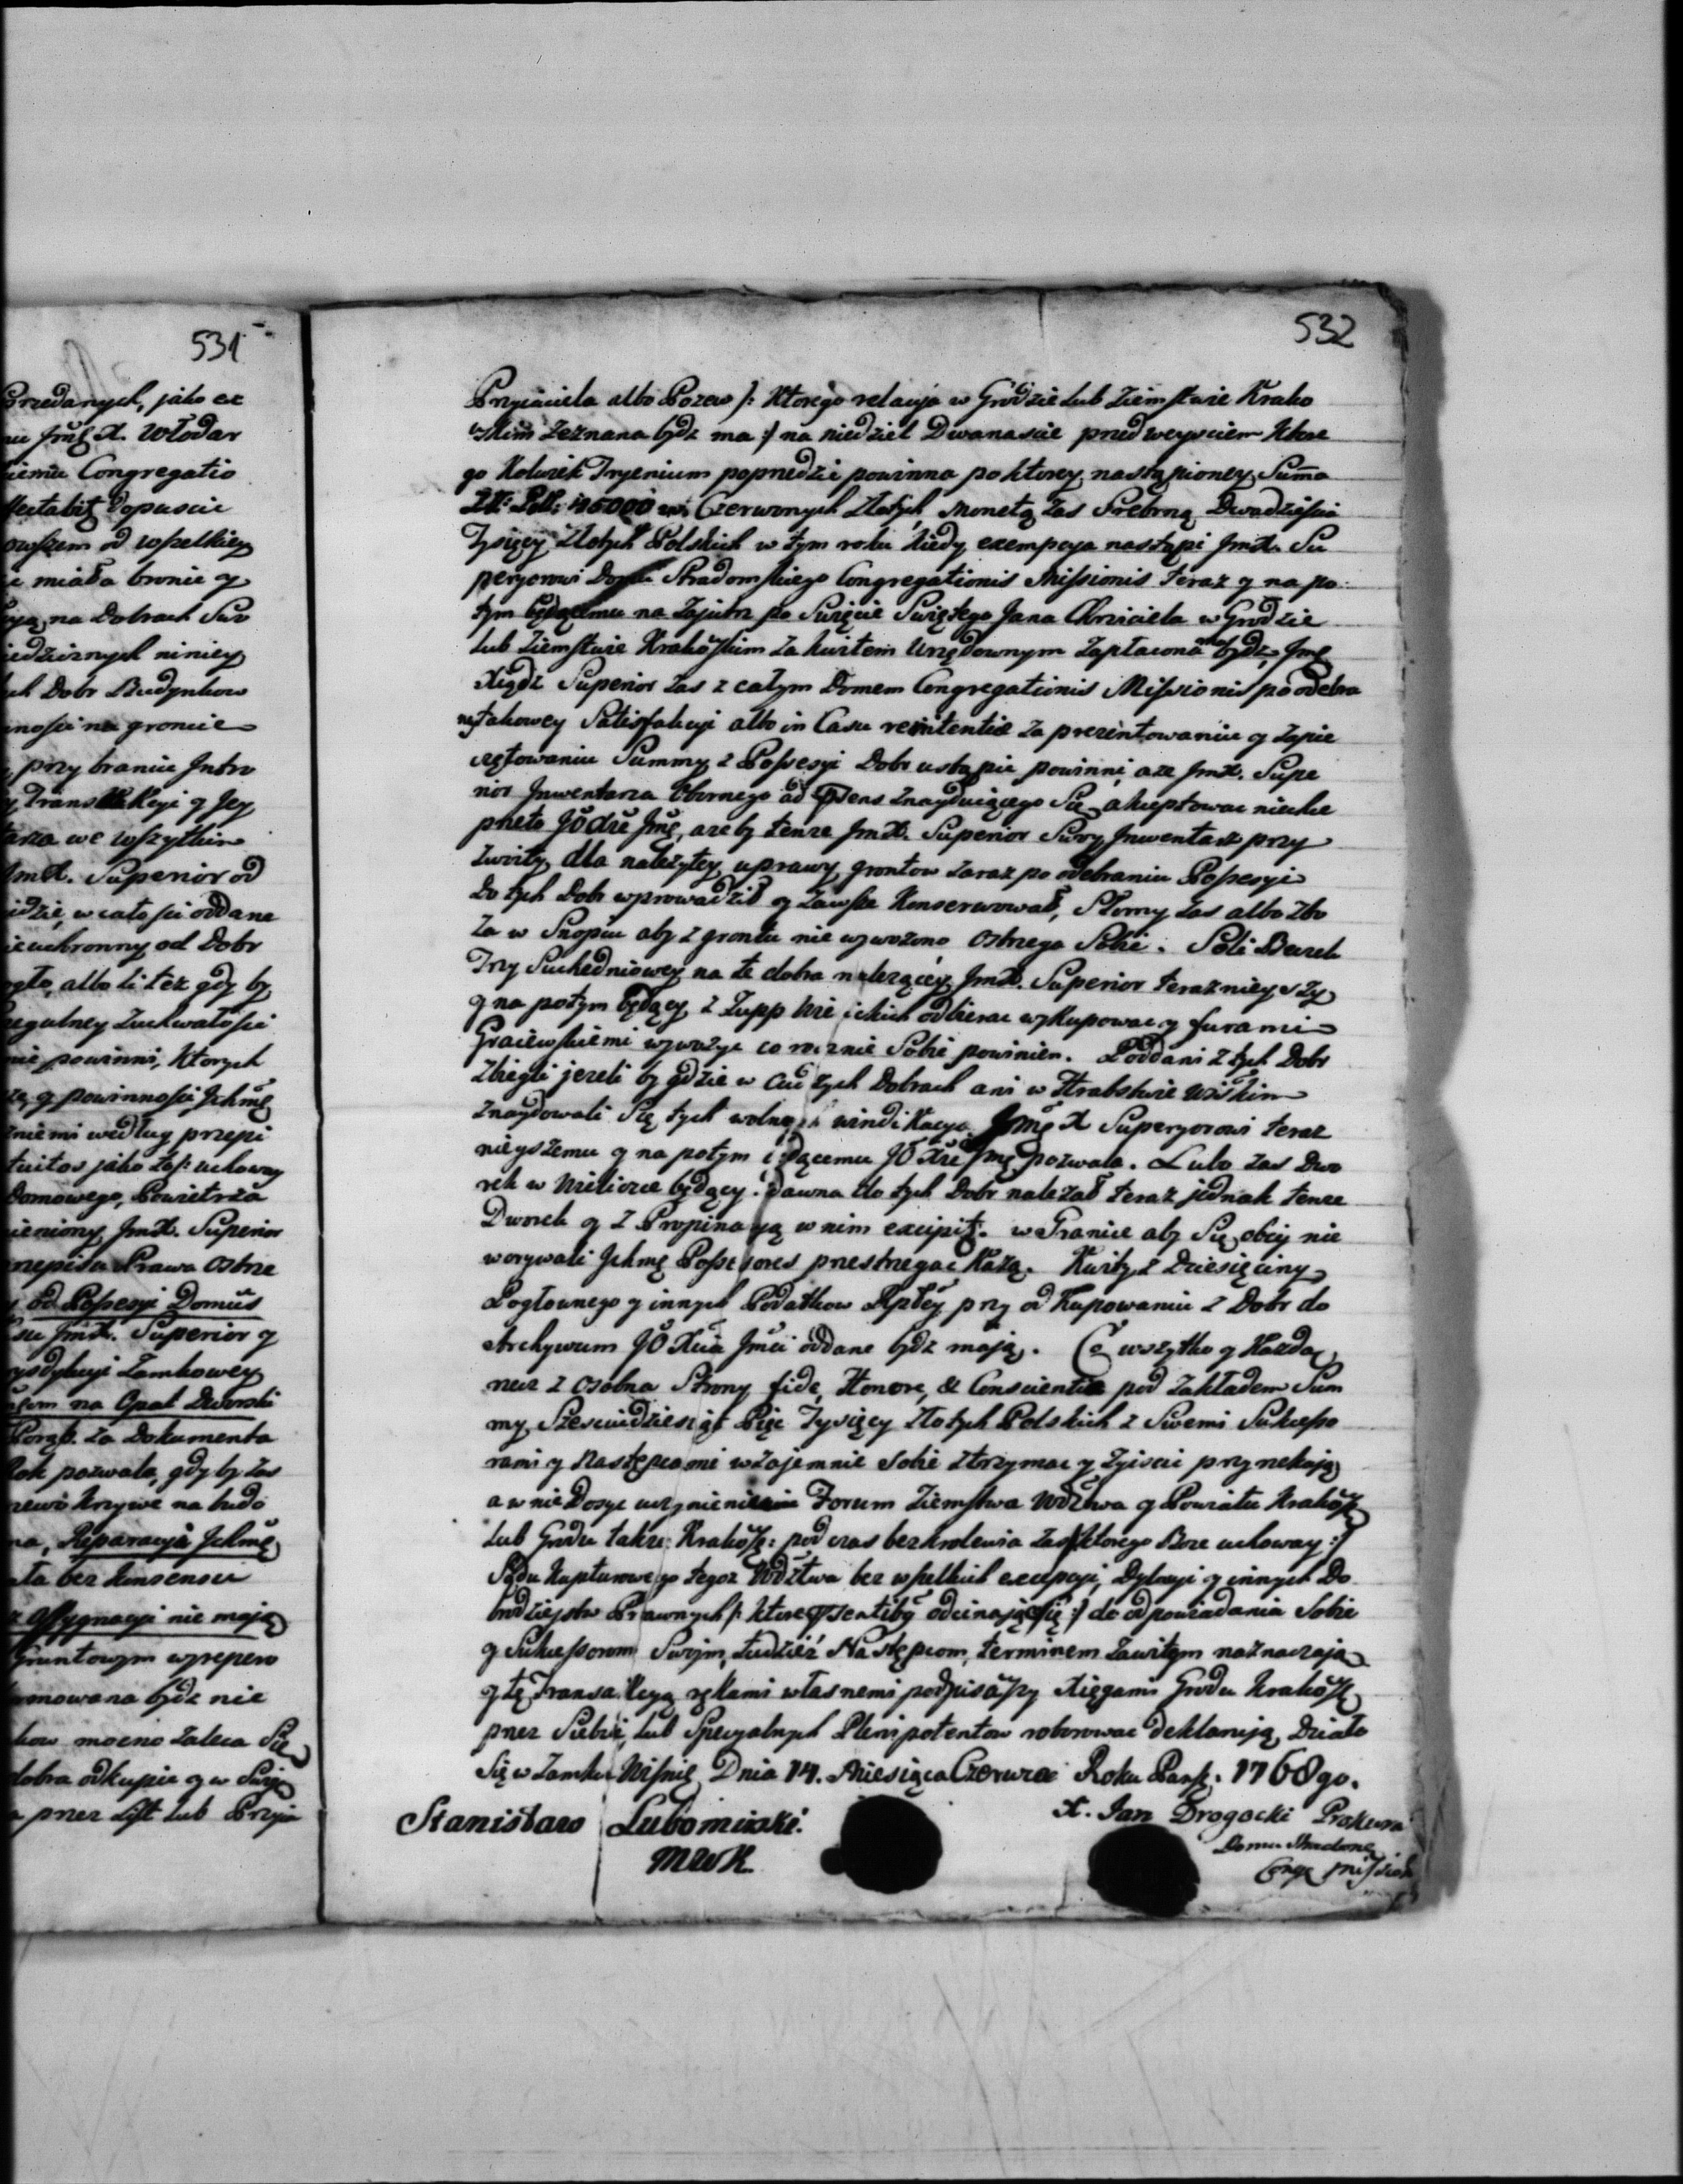 531
Przedanych, jako ex
nu Jmę X. Włodar
Congregatio
dopuscic
owszem od wszelkiey
miała bronic y
na Dobrach Suo
niniey
Dobr Budynkow
na groncie
przy braniu Intro
y Transakcyi y Jey
we wszytkim
JmX. Superior od
w całości oddane
od Dobr
albo li też gdy by
Zuchwałości
nie powinni, Ktorych
y powinności Jchmę
według przepi
jako też uchoway
Domowego, Powietrza
JmX. Superior
Prawa Ostrze
od Possesyi Domûs
JmX. Superior y
Zamkowey
na Opał Dworski
Za Dokumenta
pozwala, gdy by zas
Krzywe na ludo
Reparacyia Jchmę
bez Konsensu
Assygnacyi nie mają
Gruntowym wyrepero
bydz nie
mocno zaleca Się
dobra odkupic y w Swoję
przez List lub Przyia
532
Przyiaciela albo Pozew /: Ktorego relacyja w Grodzie Lub Ziemstwie Krako
wskim Zeznana bydz ma :/ na niedziel Dwanascie przed weysciem
go Kolwiek Tryenium poprzedzic powinna po ktorey nastąpioney Suma
Zł: Pol: 45000 Czerwonych Złotych Monetą Zas Srebrną Dwadziescia
Tysięcy Złotych Polskich w tym roku kiedy exempcya nastąpi JmX. Su
peryorowi Domu Stradomskiego Congregationis Missionis teraz y na po
tym będącemu na Zajutrz po Swięcie Swiętego Jana Chrzciciela w Grodzie
Lub Ziemstwie Krakowskim Za kwitem Urzędownym Zapłacona ma bydz, Jmę
Xiądz Superior Zas z całym Domem Congregationis Missionis po odebra
ney takowey Satisfakcyi albo in Casu renitentiæ Za prezentowaniu y Zapie
czętowaniu Summy z Possesyi Dobr ustąpic powinni, aze JmX. Supe
rior Inwentarza Obornego ad Præsens Znayduiącego Się akceptowac niechce
przeto JÔ Xże Jmę, azeby tenze JmX. Superior Swoy Inwentarz przy
Zwoity dla należytey uprawy grontow Zaraz po odebraniu Possesyi
Do tych Dobr wprowadził y Zawsze Konserwował, Słomy Zas albo Zbo
Za w Snopiu aby z grontu nie wywożono Ostrzega Sobie. Soli Beczek
Trzy Suchedniowey na te dobra należącey, JmX. Superior terazniey szy
y na potym będący z Zupp odbierac wykupowac y furami
Graiewskiemi wywożyc co rocznie Sobie powinien. Poddani z tych Dobr
Zbiegli jezeli by gdzie w cudzych Dobrach ani w Hrabstwie Wiskim
Znaydowali Się tych wolną windikacya Jmę X Superyorowi teraz
nieyszemu y na potym będącemu JÔ Xże Jmę pozwala. Lubo Zas Dwo
rek w Wieliczce będący z dawna do tych Dobr należał teraz jednak tenze
Dworek y z Propinacyą w nim excipit. w Granice aby Się obcy nie
worywali Jchmę Possesores przestrzegac Każą. Kwity z Dziesięciny
Pogłownego y innych Podatkow przy od Kupowaniu z Dobr do
Archywum JÔ Xcia Jmci oddane bydz mają. Co wszytko y Każda
rzecz z Osobna Strony fide, Honore, & Conscientia pod Zakładem Sum
my Szescdziesiąt Pięc Tysięcy Złotych Polskich z Swemi Sukcesso
rami y Następcami wzajemnie Sobie Ztrzymac y Zyiscic przyrzekają
a w nie Dosyc uczynieniu Forum Ziemstwa Wdztwa y Powiatu Krakowsk
Lub Grodu także: Krakowsk: pod czas bezkrolewia Zas /: ktorego Boze uchoway :/
Sądu Kapturowego tegoż Wdztwa bez wszelkich excepcyi, Dylacyi y innych Do
brodzieystw Prawnych /: ktore præsentibg odcinają Się :/ do odpowiadania Sobie
y Sukcessorom Swoym, tudziesz Następcom, terminem Zawitym naznaczają
y tę Transakcyą rękami własnemi podpisaszy Xięgami Grodu Krakowsk
przez Siebie, lub Specyalnych Plenipotentow roborowac deklarują, Działo
Się w Zamku Wisnic Dnia 14. Miesiąca Czerwca Roku Pańsk. 1768go.
Stanisław Lubomirski.
MWK
X. Jan Drogocki Prokura
Domu Stradoms
Cong Mission